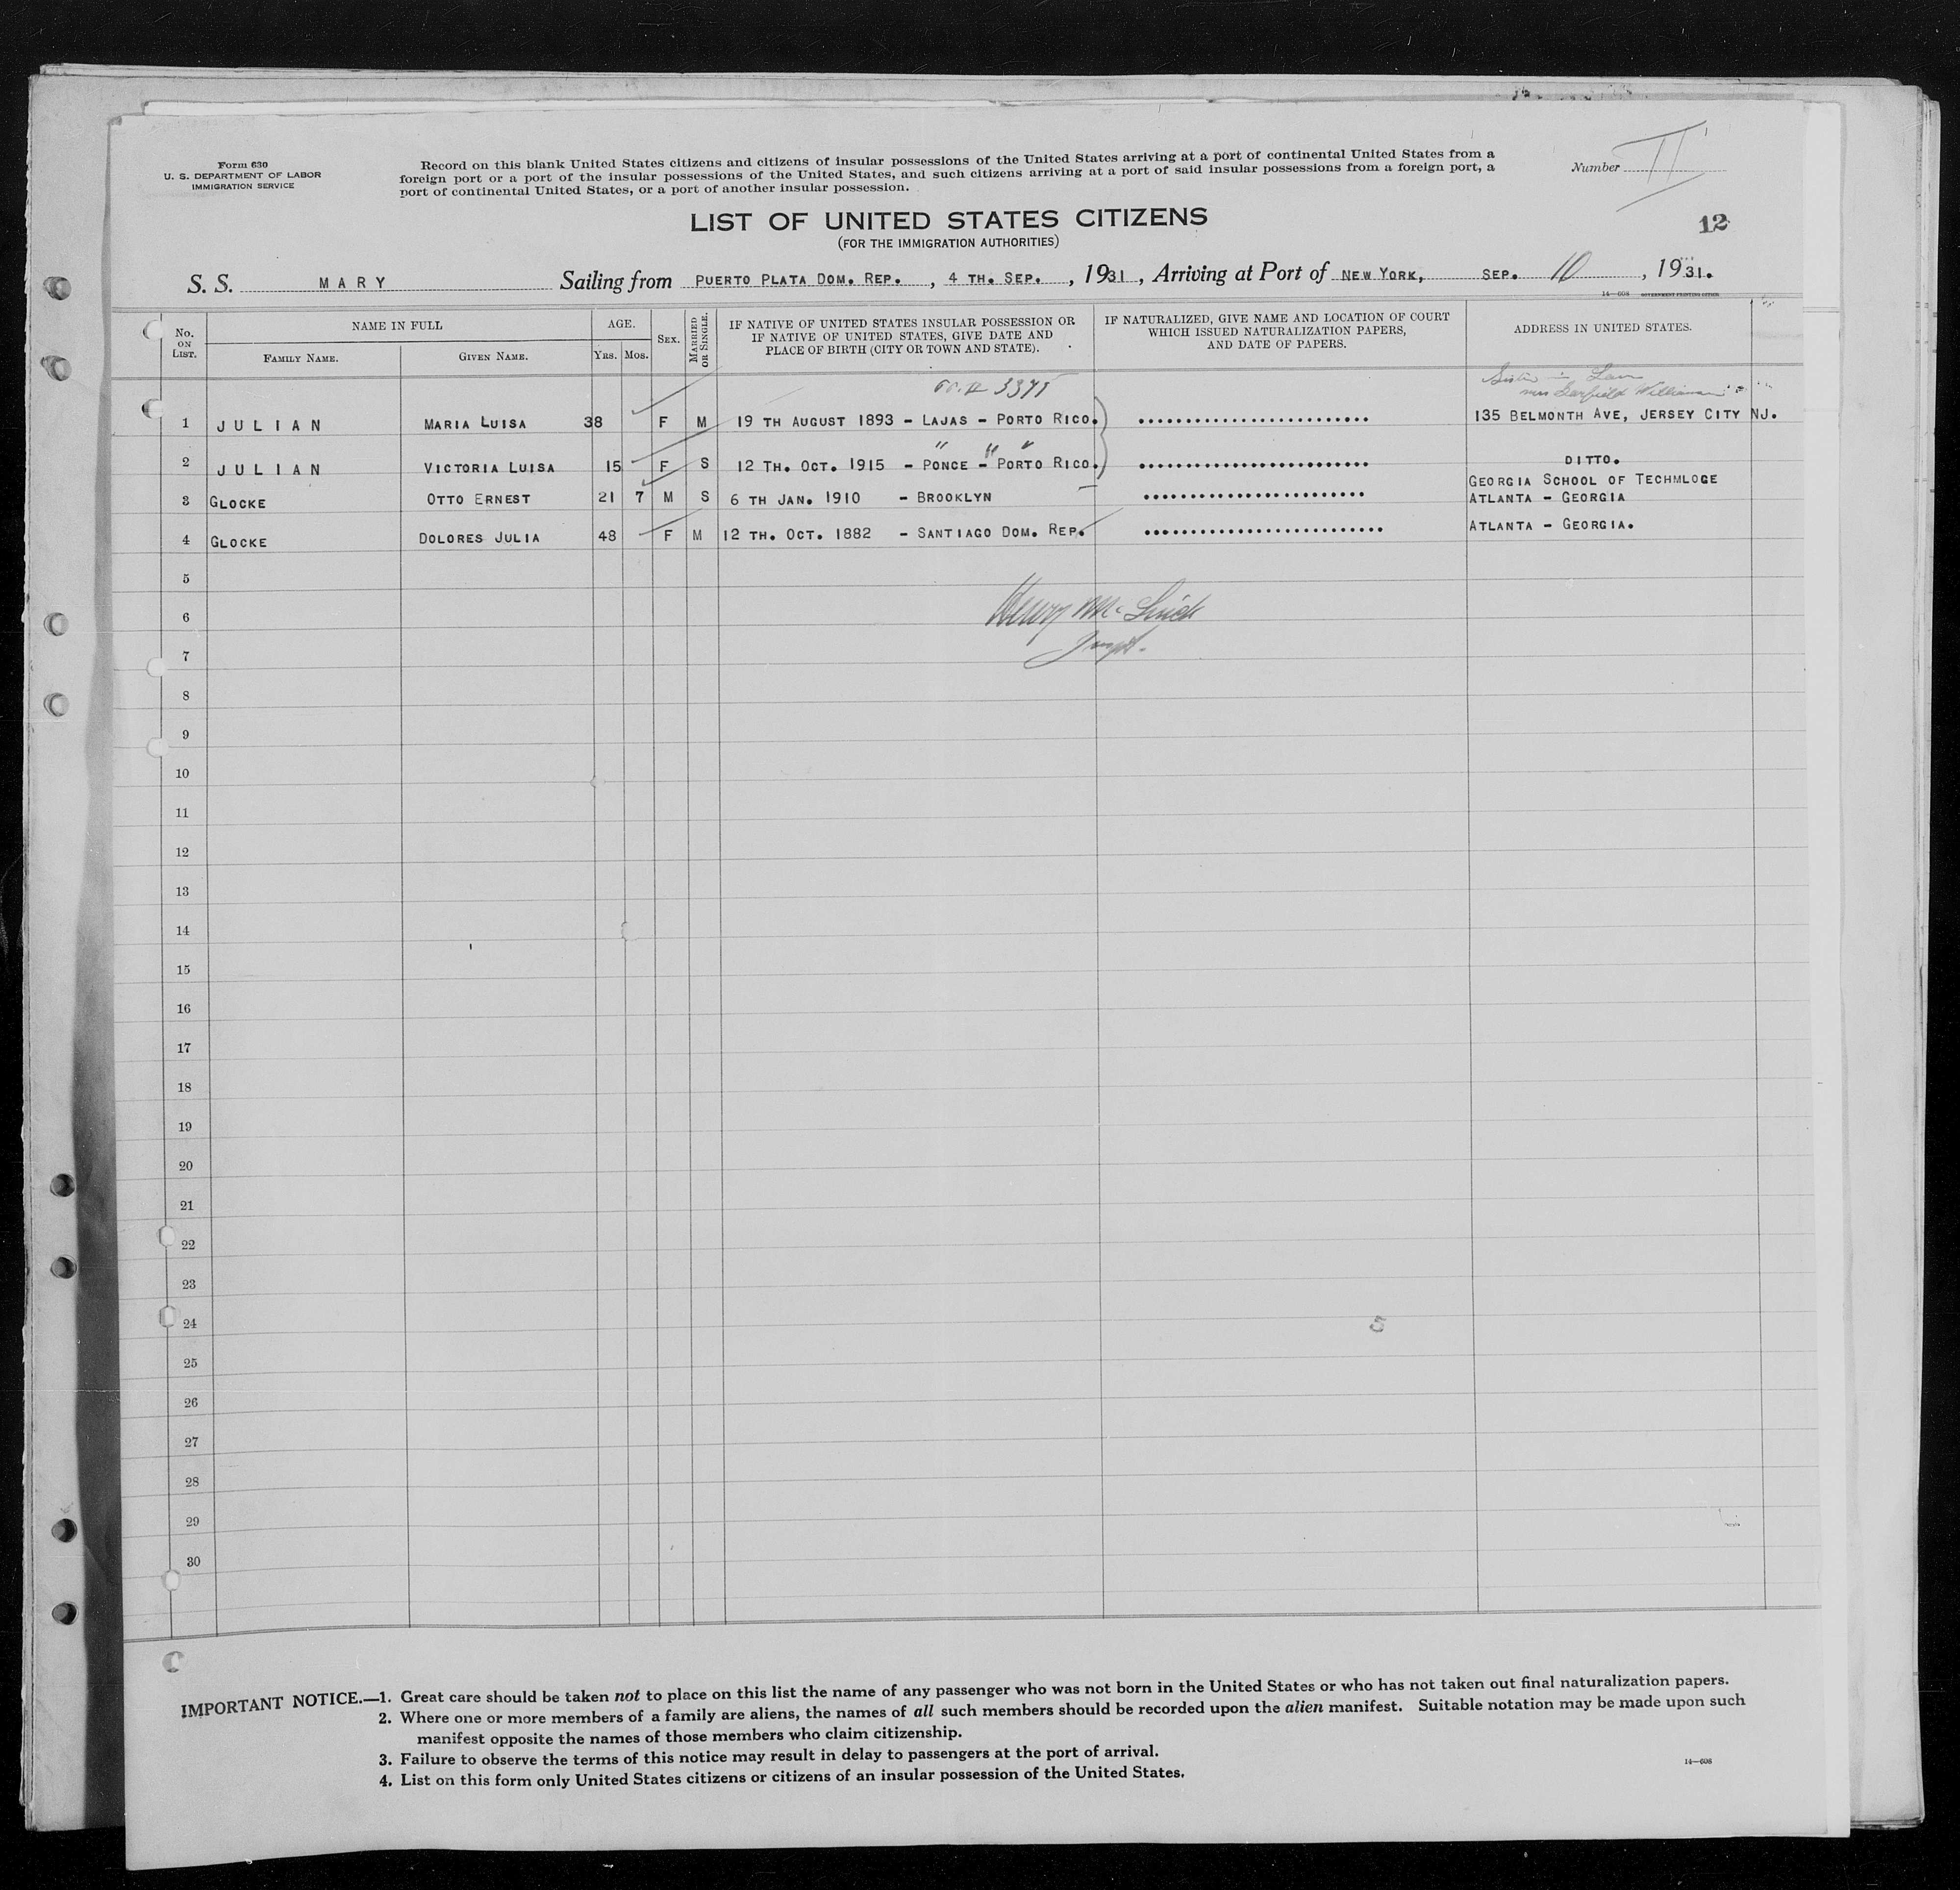 Form 630
U. S. DEPARTMENT OF LABOR
IMMIGRATION SERVICE
Record on this blank United States citizens and citizens of insular possessions of the United States arriving at a port of continental United States from a
foreign port or a port of the insular possessions of the United States, and such citizens arriving at a port of said insular possessions from a foreign port, a
port of continental United States, or a port of another insular possession.
Number II
12
LIST OF UNITED STATES CITIZENS
(FOR THE IMMIGRATION AUTHORITIES)
S. S. MARY Sailing from PUERTO PLATA DOM. REP. , 4 TH. SEP. , 1931 , Arriving at Port of NEW YORK, SEP. 10 , 1931.
14—608 GOVERNMENT PRINTING OFFICE
No. ON LIST.
NAME IN FULL
FAMILY NAME.
GIVEN NAME.
AGE.
YRS. MOS.
SEX.
MARRIED OR SINGLE.
IF NATIVE OF UNITED STATES INSULAR POSSESSION OR
IF NATIVE OF UNITED STATES, GIVE DATE AND
PLACE OF BIRTH (CITY OR TOWN AND STATE).
IF NATURALIZED, GIVE NAME AND LOCATION OF COURT
WHICH ISSUED NATURALIZATION PAPERS,
AND DATE OF PAPERS.
ADDRESS IN UNITED STATES.
3375
Sister in Law
Mrs Garfield Williams
1 JULIAN MARIA LUISA 38 F M 19 TH AUGUST 1893 - LAJAS - PORTO RICO. 135 BELMONTH AVE, JERSEY CITY NJ.
" " "
2 JULIAN VICTORIA LUISA 15 F S 12 TH. OCT. 1915 - PONCE - PORTO RICO. DITTO.
3 GLOCKE OTTO ERNEST 21 7 M S 6 TH JAN. 1910 - BROOKLYN GEORGIA SCHOOL OF TECHMLOGE
ATLANTA - GEORGIA
4 GLOCKE DOLORES JULIA 48 F M 12 TH. OCT. 1882 - SANTIAGO DOM. REP. ATLANTA - GEORGIA.
5
6
7
8
9
10
11
12
13
14
15
16
17
18
19
20
21
22
23
24
5
25
26
27
28
29
30
IMPORTANT NOTICE.—1. Great care should be taken not to place on this list the name of any passenger who was not born in the United States or who has not taken out final naturalization papers.
2. Where one or more members of a family are aliens, the names of all such members should be recorded upon the alien manifest. Suitable notation may be made upon such
manifest opposite the names of those members who claim citizenship.
3. Failure to observe the terms of this notice may result in delay to passengers at the port of arrival.
4. List on this form only United States citizens or citizens of an insular possession of the United States.
14—608